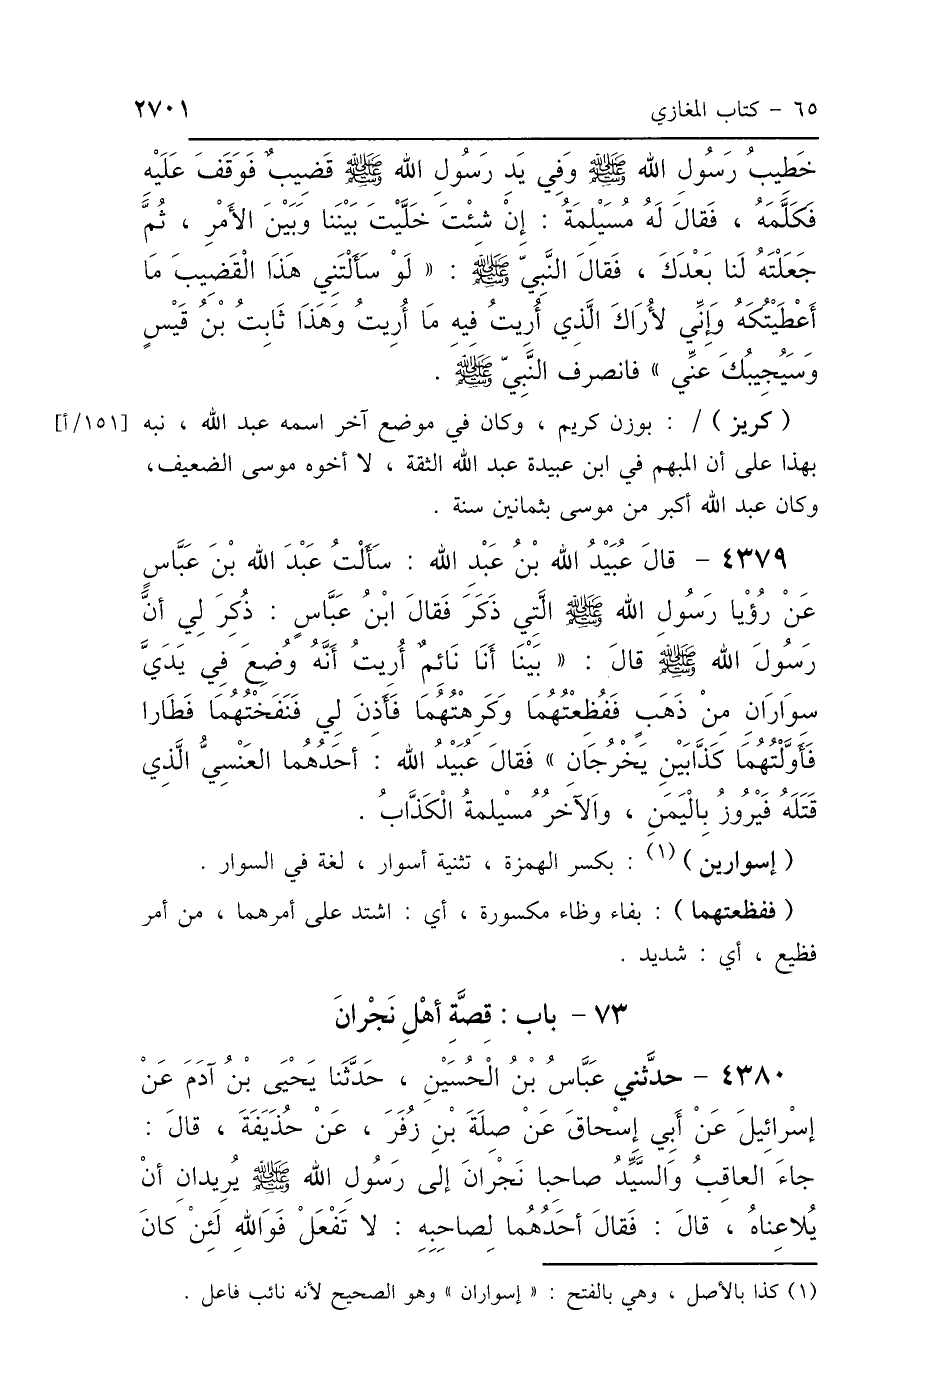 ٦٥ - كتاب المغازي ٢٧٠١
خَطِيبُ رَسُولِ الله ﷺ وَفِي يَدِ رَسُولِ الله ﷺ قَضِيبٌ فَوَقَفَ عَلَيْهِ
فَكَلَّمَهُ ، فَقالَ لَهُ مُسَيْلِمَةُ : إِنْ شئْتَ خَلَّيْتَ بَيْنَنا وَبَيْنَ الأَمْرِ ، ثُمَّ
جَعَلْتَهُ لَنا بَعْدَكَ ، فَقالَ النَّبِيّ ﷺ : « لَوْ سَأَلْتَنِي هَذَا الْقَضِيبَ مَا
أَعْطَيْتُكَهُ وَإِنِّي لأُرَاكَ الَّذِي أُرِيتُ فِيهِ مَا أُرِيتُ وَهَذَا ثَابِتُ بْنُ قَيْسٍ
وَسَيُجِيبُكَ عَنِّي » فانصرف النَّبِيّ ﷺ .
( كريز ) / : بوزن كريم ، وكان في موضع آخر اسمه عبد الله ، نبه [١٥١/أ]
بهذا على أن المبهم في ابن عبيدة عبد الله الثقة ، لا أخوه موسى الضعيف،
وكان عبد الله أكبر من موسى بثمانين سنة .
٤٣٧٩ - قالَ عُبَيْدُ الله بْنُ عَبْدِ الله : سَأَلْتُ عَبْدَ الله بْنَ عَبَّاسٍ
عَنْ رُؤْيا رَسُولِ الله ﷺ الَّتِي ذَكَرَ فَقالَ ابْنُ عَبَّاسٍ : ذُكِرَ لِي أنَّ
رَسُولَ الله ﷺ قالَ : « بَيْنَا أَنَا نَائِمٌ أُرِيتُ أَنَّهُ وُضِعَ فِي يَدَيَّ
سِوَارَانِ مِنْ ذَهَبٍ فَفُظِعْتُهُمَا وَكَرِهْتُهُمَا فَأُذِنَ لِي فَنَفَخْتُهُمَا فَطَارا
فَأَوَّلْتُهُمَا كَذَّابَيْنِ يَخْرُجَانِ » فَقالَ عُبَيْدُ الله : أحَدُهُما العَنْسِيُّ الَّذِي
قَتَلَهُ فَيْرُوزُ بِالْيَمَنِ ، والآخرُ مُسْيلمةُ الْكَذَّابُ .
( إسوارين )(١) : بكسر الهمزة ، تثنية أسوار ، لغة في السوار .
( ففظعتهما ) : بفاء وظاء مكسورة ، أي : اشتد على أمرهما ، من أمر
فظيع ، أي : شديد .
٧٣ - باب : قِصَّةِ أهْلِ نَجْرانَ
٤٣٨٠ - حدثَّني عَبَّاسُ بْنُ الْحُسَيْنِ ، حَدَّثَنا يَحْيَى بْنُ آدَمَ عَنْ
إسْرائِيلَ عَنْ أبي إسْحاقَ عَنْ صِلَةَ بْنِ زُفَرَ ، عَنْ حُذَيْفَةَ ، قالَ :
جاءَ العاقِبُ وَالسَّيِّدُ صاحِبا نَجْرَانَ إلى رَسُولِ الله ﷺ يُرِيدانِ أنْ
يُلاعِناهُ ، قالَ : فَقالَ أحَدُهُما لِصاحِبِهِ : لا تَفْعَلْ فَوَاللهِ لَئِنْ كانَ
(١) كذا بالأصل ، وهي بالفتح : « إسواران » وهو الصحيح لأنه نائب فاعل .